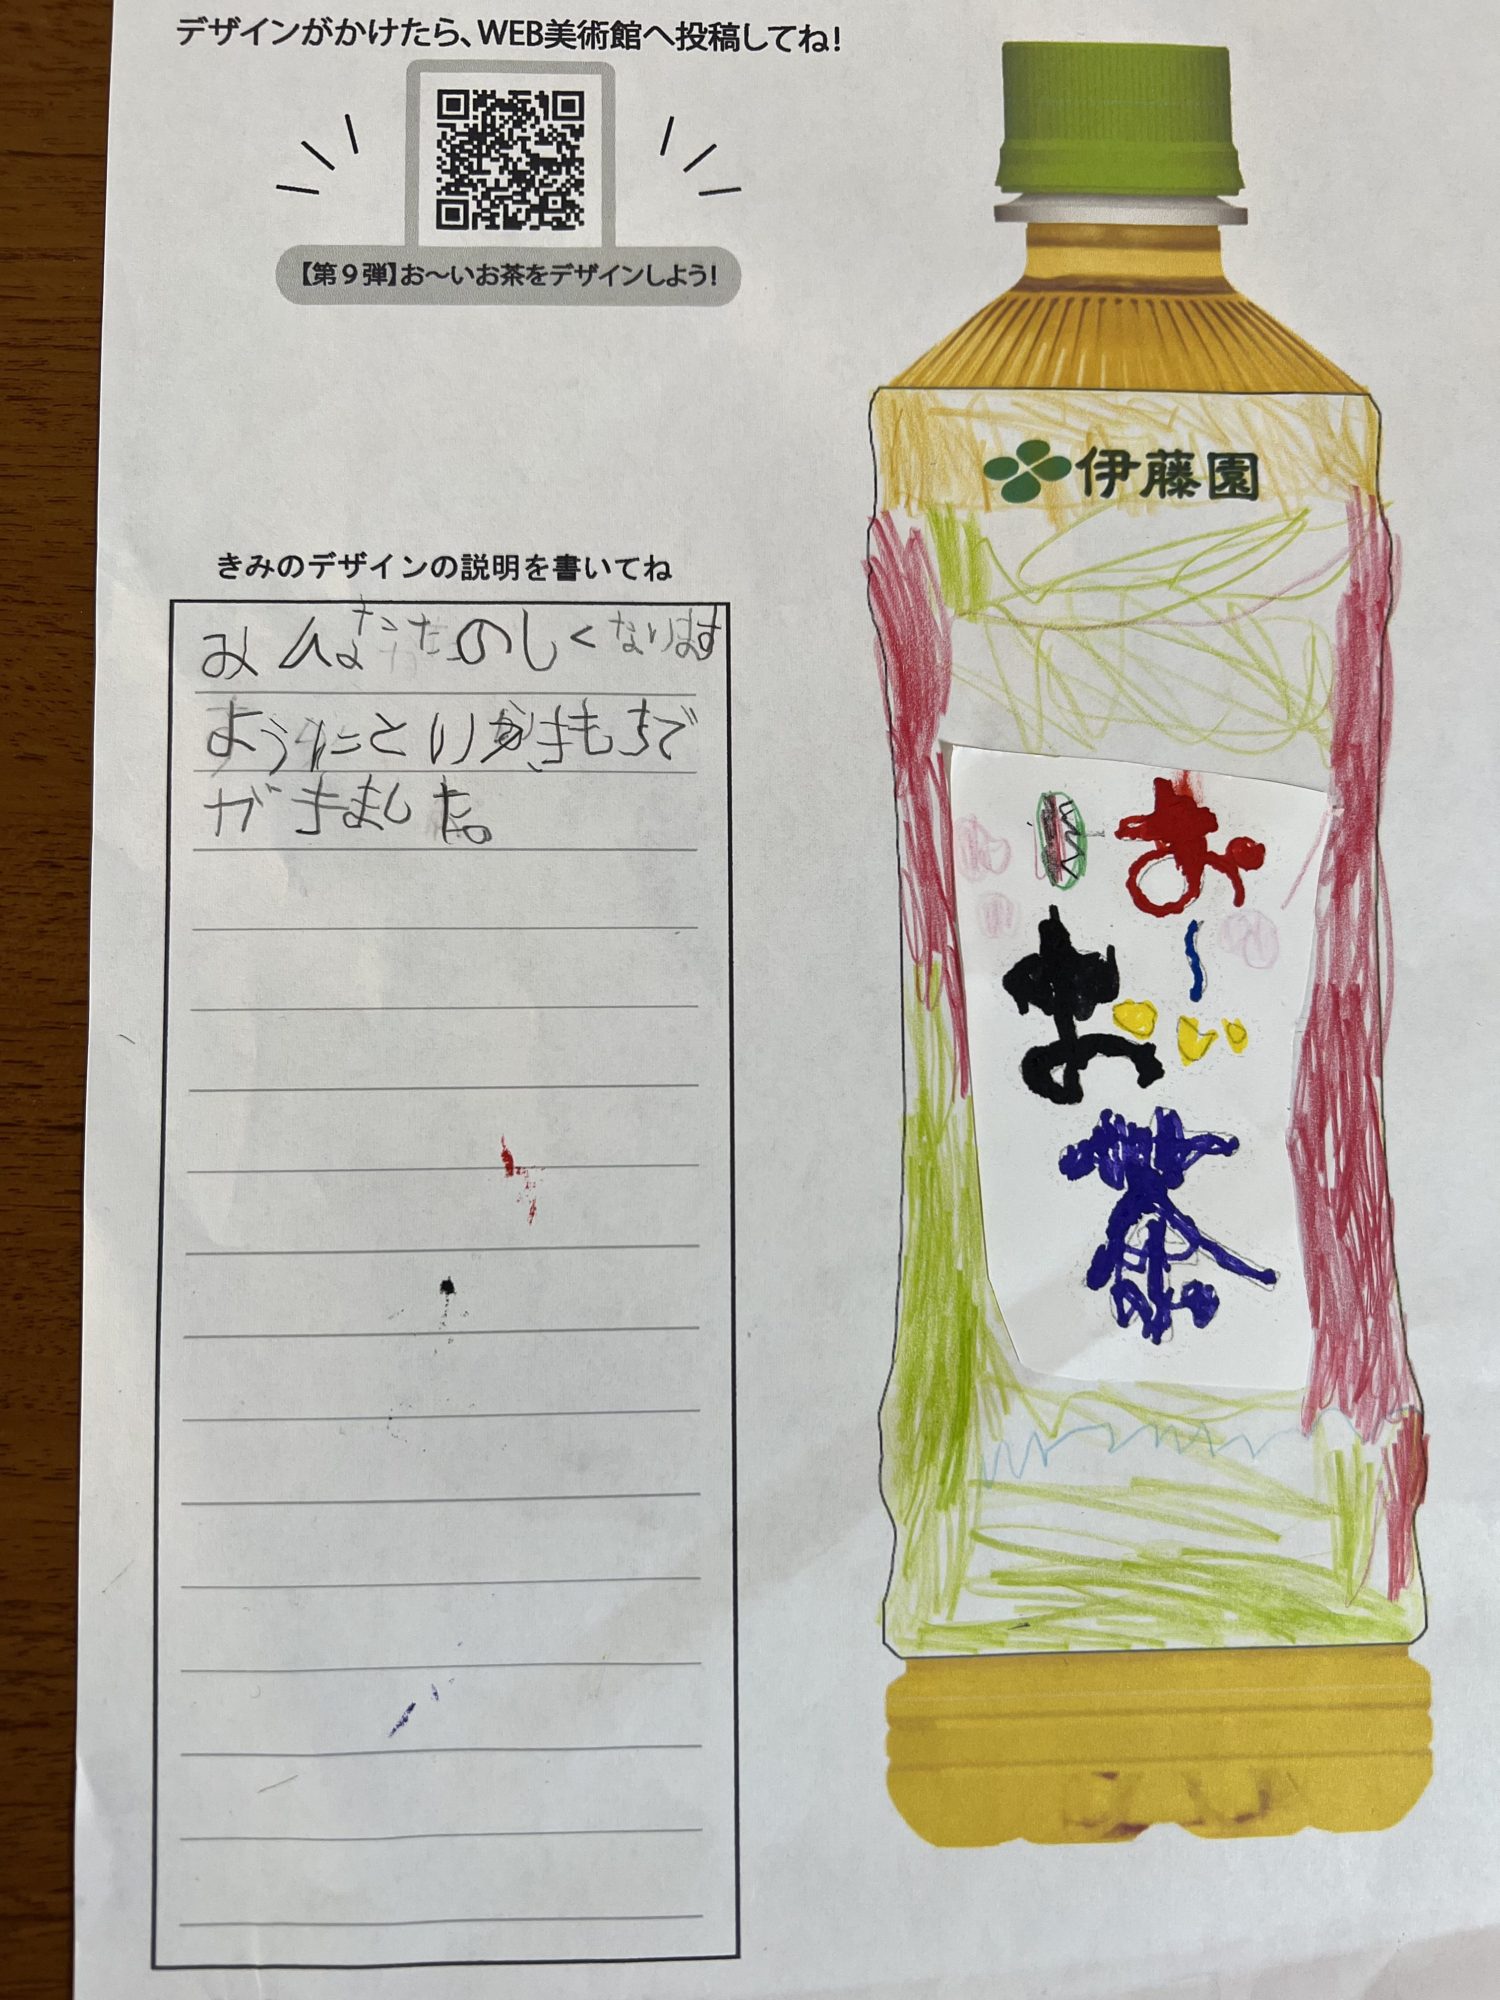 デザインがかけたら、WEB美術館へ投稿してね!
【第9弾】お〜いお茶をデザインしよう!
きみのデザインの説明を書いてね
みんなたのしくなります
ようにというきもちで
がきました。
伊藤園
お〜い
お
茶